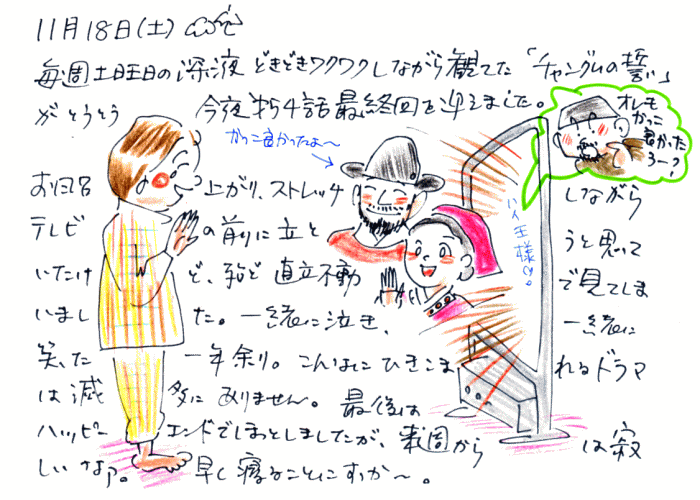 11月18日(土)
毎週土曜日の深夜どきどきワクワクしながら観てた「チャングムの誓い」
がとうとう 今夜 第54話最終回を迎えました。
オレも
かっこ
良かった
ろー?
かっこ良かったよ〜
お風呂上がり、ストレッチしながら
テレビの前に立とうと思って
いたけど、殆ど直立不動で見てしま
いました。一緒に泣き、一緒に
笑った一年余り。こんなにひきこまれるドラマ
は滅多にありません。最後は
ハッピーエンドでほっとしましたが、来週からは寂
しいなァ。早く寝ることにすっか〜。
王様